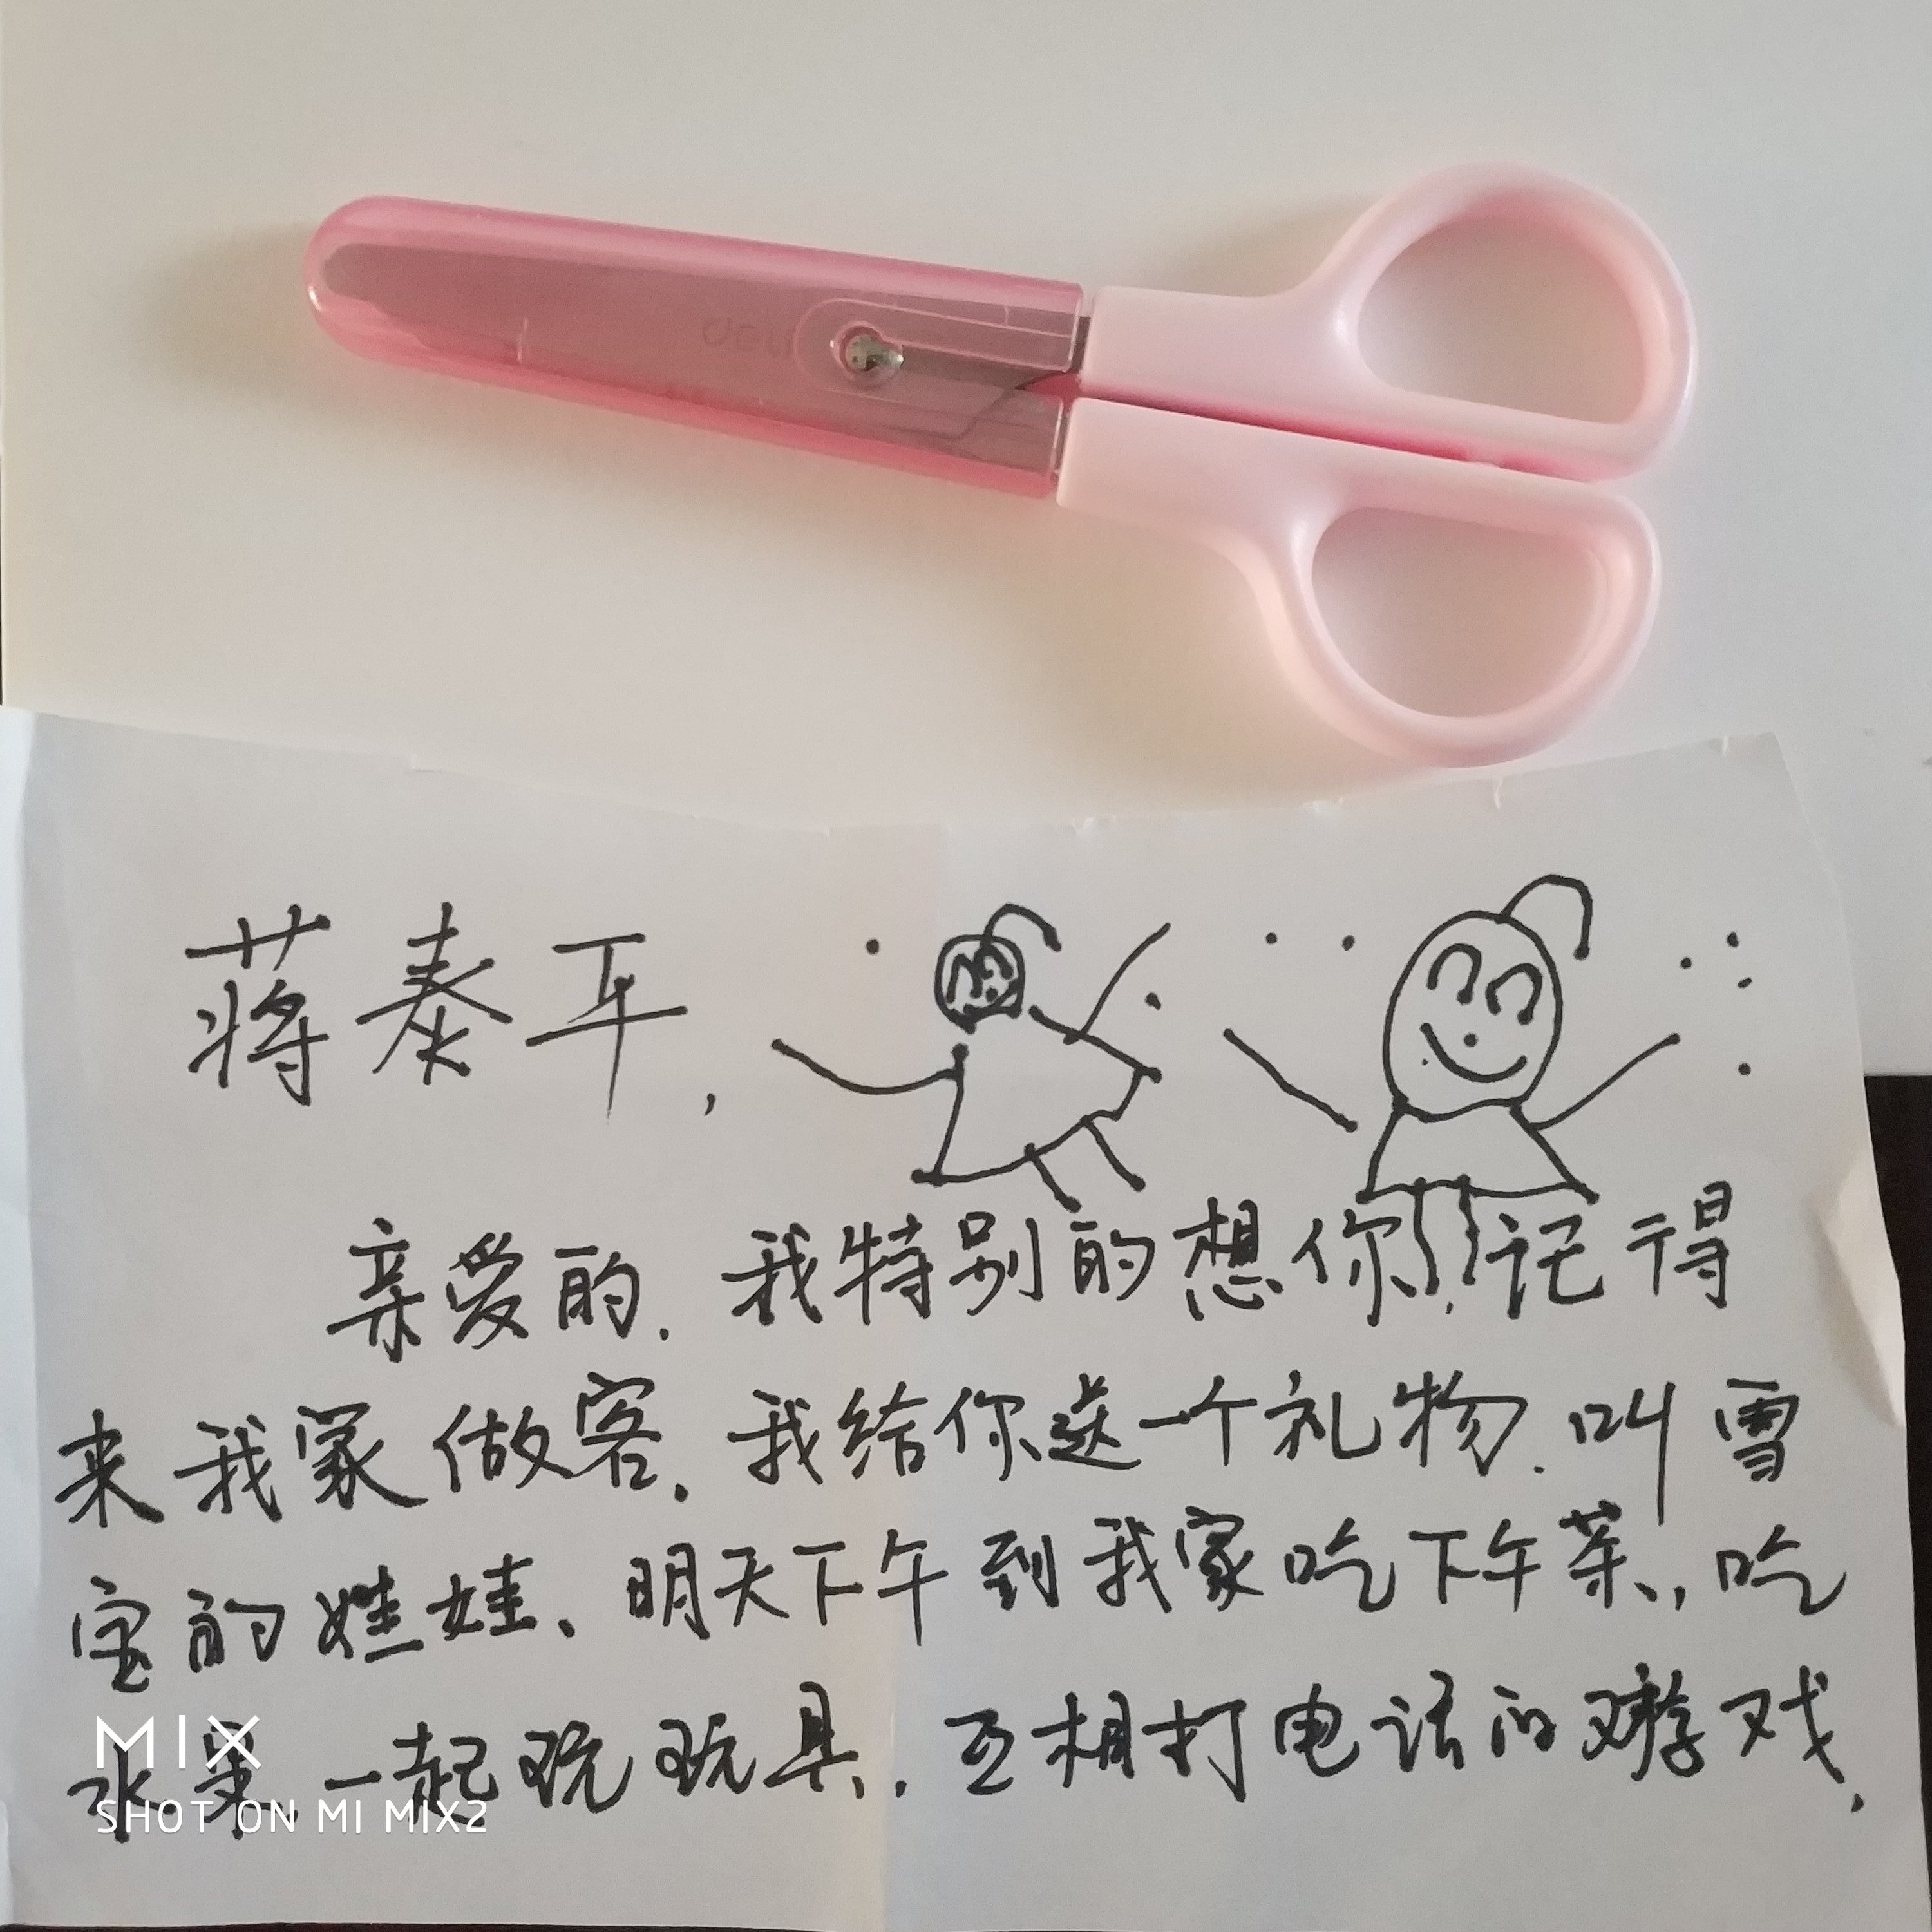 deli
蒋泰耳，
亲爱的．我特别的想你，记得
来我家做客．我给你送一个礼物．叫雪
宝的娃娃、明天下午到我家吃下午茶，吃
水果，一起玩玩具．互相打电话的游戏，
MIX
SHOT ON MI MIX2